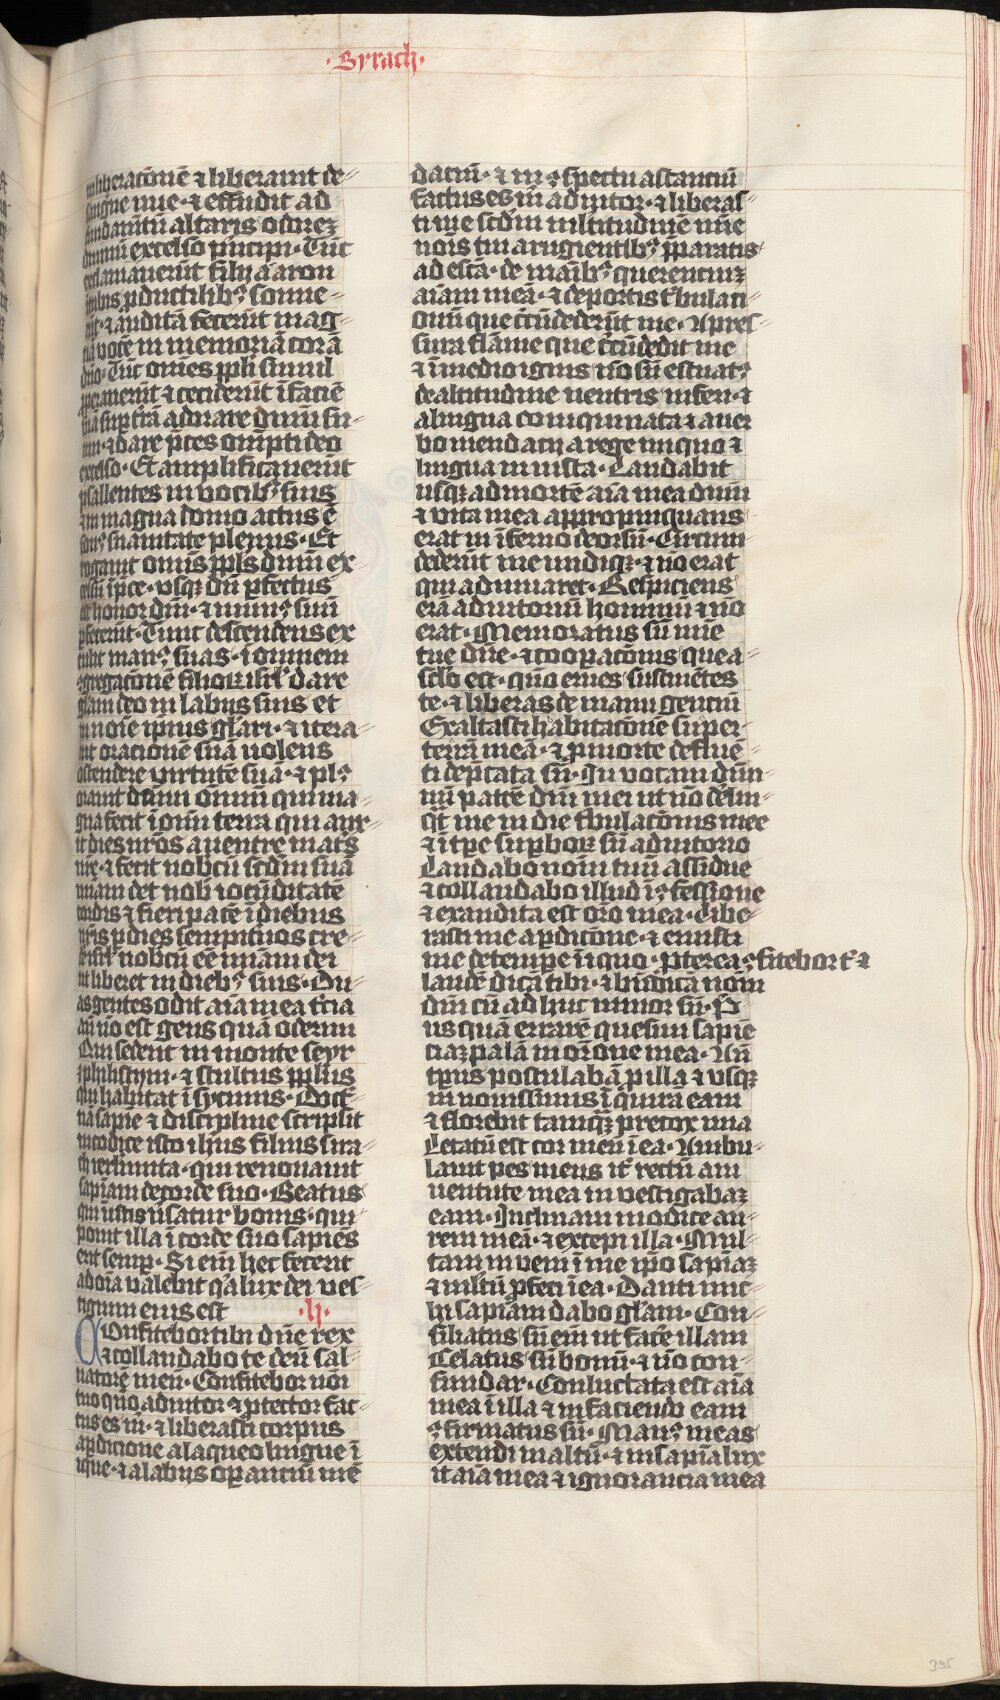 ·Syrach·
in liberatōnē ⁊ liberauit de
sangue uue · ⁊ effudit ad
fundamtū altaris odorez
diuinū excelso prīcipi · Tūc
exclamauerūt filij aaron
tubis ꝓductilibꝫ sonue
rūt · ⁊ auditā fecerūt mag
nā vocē in memoriā corā
dn̄o · Tūc omēs ppl̄i simul
ꝓperauerūt ⁊ ceciderūt ī faciē
suā sup t̄rā adorare dn̄m su
um · ⁊ dare p̄ces omīpti deo
excelso · Et amplificauerūt
psallentes in vocibꝫ suis
⁊ in magna domo auctus ē
sonꝰ suauitate plenus · Et
rogauit omīs ppl̄s dn̄m ex
celsū ī p̄ce · vsqꝫ dū ꝑfectus
est honor dn̄i · ⁊ munꝰ suū
ꝑfecerūt · Tunc descendens ex
tulit manꝰ suas · ī omnem
ꝯgregatōnē filioꝝ isrl̄ dare
gl̄am deo in labijs suis et
in noīe ip̄ius gl̄ari · ⁊ itera
uit orationē suā uolens
ostendere virtutē suā · ⁊ plꝰ
orauit dn̄m om̄iū qui ma
gna fecit ī om̄i terra qui aux
it dies nr̄os a uentre mat̄s
nr̄e · ⁊ fecit nobcū scd̄m suā
mīam det nob̄ iocūditatē
cordis ⁊ fieri pacē ī diebus
nr̄is ꝑ dies sempit̄nos cre
dere isrl̄ nobcū eē mīam dei
ut liberet in diebꝫ suis · Du
as gentes odit aīa mea t̄cia
aū nō est gens quā oderim
Qui sedent in monte seyr
⁊ philistym · ⁊ stultus ppl̄us
qui habitat ī sycimis · Doct̄
nā sapīe ⁊ discipline scripsit
in codice isto ih̄us filius sira
ch ierl̄imita · qui renouauit
sapīam de corde suo · Beatus
qui istis v̄satur bonis · qui
ponit illa ī corde suo sapiēs
erit semꝑ · Si em̄ hec fecerit
ad oīa valebit q̄a lux dei ves
tigium eius est ·li·
COnfitebor tibi dn̄e rex
⁊ collaudabo te deū sal
uatorē meū · Confitebor noī
tuo qm̄ adiutor ⁊ ꝓtector fac
tus es m̄ · ⁊ liberasti corpus
a ꝑdicione a laqueo lingue ī
ique · ⁊ a labijs oꝑantiū mē
daciū · ⁊ in ꝯspectu astantiū
factus es m̄ adiutor · ⁊ liberas
ti me scd̄m ml̄titudinē mīe
noīs tui a rugientibꝫ p̄paratis
ad escā · de maībꝫ querenciuꝫ
aīam meā · ⁊ de portis t̄bulaci
onū que c̄cūdederūt me · A pres
sura flāme que c̄cūdedit me
⁊ ī medio ignis nō sū estuatꝰ
de altitudine uentris inferi · ⁊
a lingua coinquinata ⁊ a uer
bo mendacij a rege iniquo ⁊
lingua iniusta · Laudabit
usqꝫ ad mortē aīa mea dn̄m
⁊ vita mea appropinquans
erat in īferno deorsū · Circum
dederūt me undiqꝫ · ⁊ nō erat
qui adiuuaret · Respiciens
erā ad iutoriū hominū ⁊ nō
erat · Memoratus sū mīe
tue dn̄e · ⁊ cooꝑatōnis que a
scl̄o est · qm̄ eruēs sustinētes
te · ⁊ liberas de manu gentiū
Exaltasti habitatōnē super
terrā meā · ⁊ ꝓ morte defluē
ti dep̄cata sū · Inuocaui dūm
nū patrē dn̄i mei ut nō derelin
qt̄ me in die t̄bulatōnis mee
⁊ ī tpe supboꝝ sū adiutorio
Laudabo nom̄ tuū assidue
⁊ collaudabo illud ī ꝯfessione
⁊ exaudita est oro mea · Libe
rasti me a ꝑdicōne · ⁊ eruisti
me de tempe īiquo · ꝓpterea ꝯfitebor t̄ ⁊
laudē dicā tibi · ⁊ bn̄dicā nom̄
dn̄i cū ad huc iunior sū · P̄
us quā errarē quesiui sapiē
ciaꝫ palā in or̄one mea · An̄
tꝑus postulabā ꝓ illa ⁊ vsqꝫ
in nouissimis īquirā eam
⁊ florebit tamqꝫ precox uua
Letatū est cor meū ī ea · Ambu
lauit pes meus it̄ rectū a iu
uentute mea inuestigabaꝫ
eam · Inclinaui modice au
rem meā · ⁊ excepi illa · Mul
tam inueni ī me ip̄o sapīaꝫ
⁊ ml̄tū ꝓfeci ī ea · Danti mic
hi sapīam dabo gl̄am · Con
siliatus sū em̄ ut facē illam
Celatus sū bonū · ⁊ nō con
fundar · Conluctata est aīa
mea ī illa ⁊ in faciendo eam
ꝯfirmatus sū · Manꝰ meas
extendi in altū · ⁊ in sapīa lux
it aīa mea ⁊ ignorancia mea
395